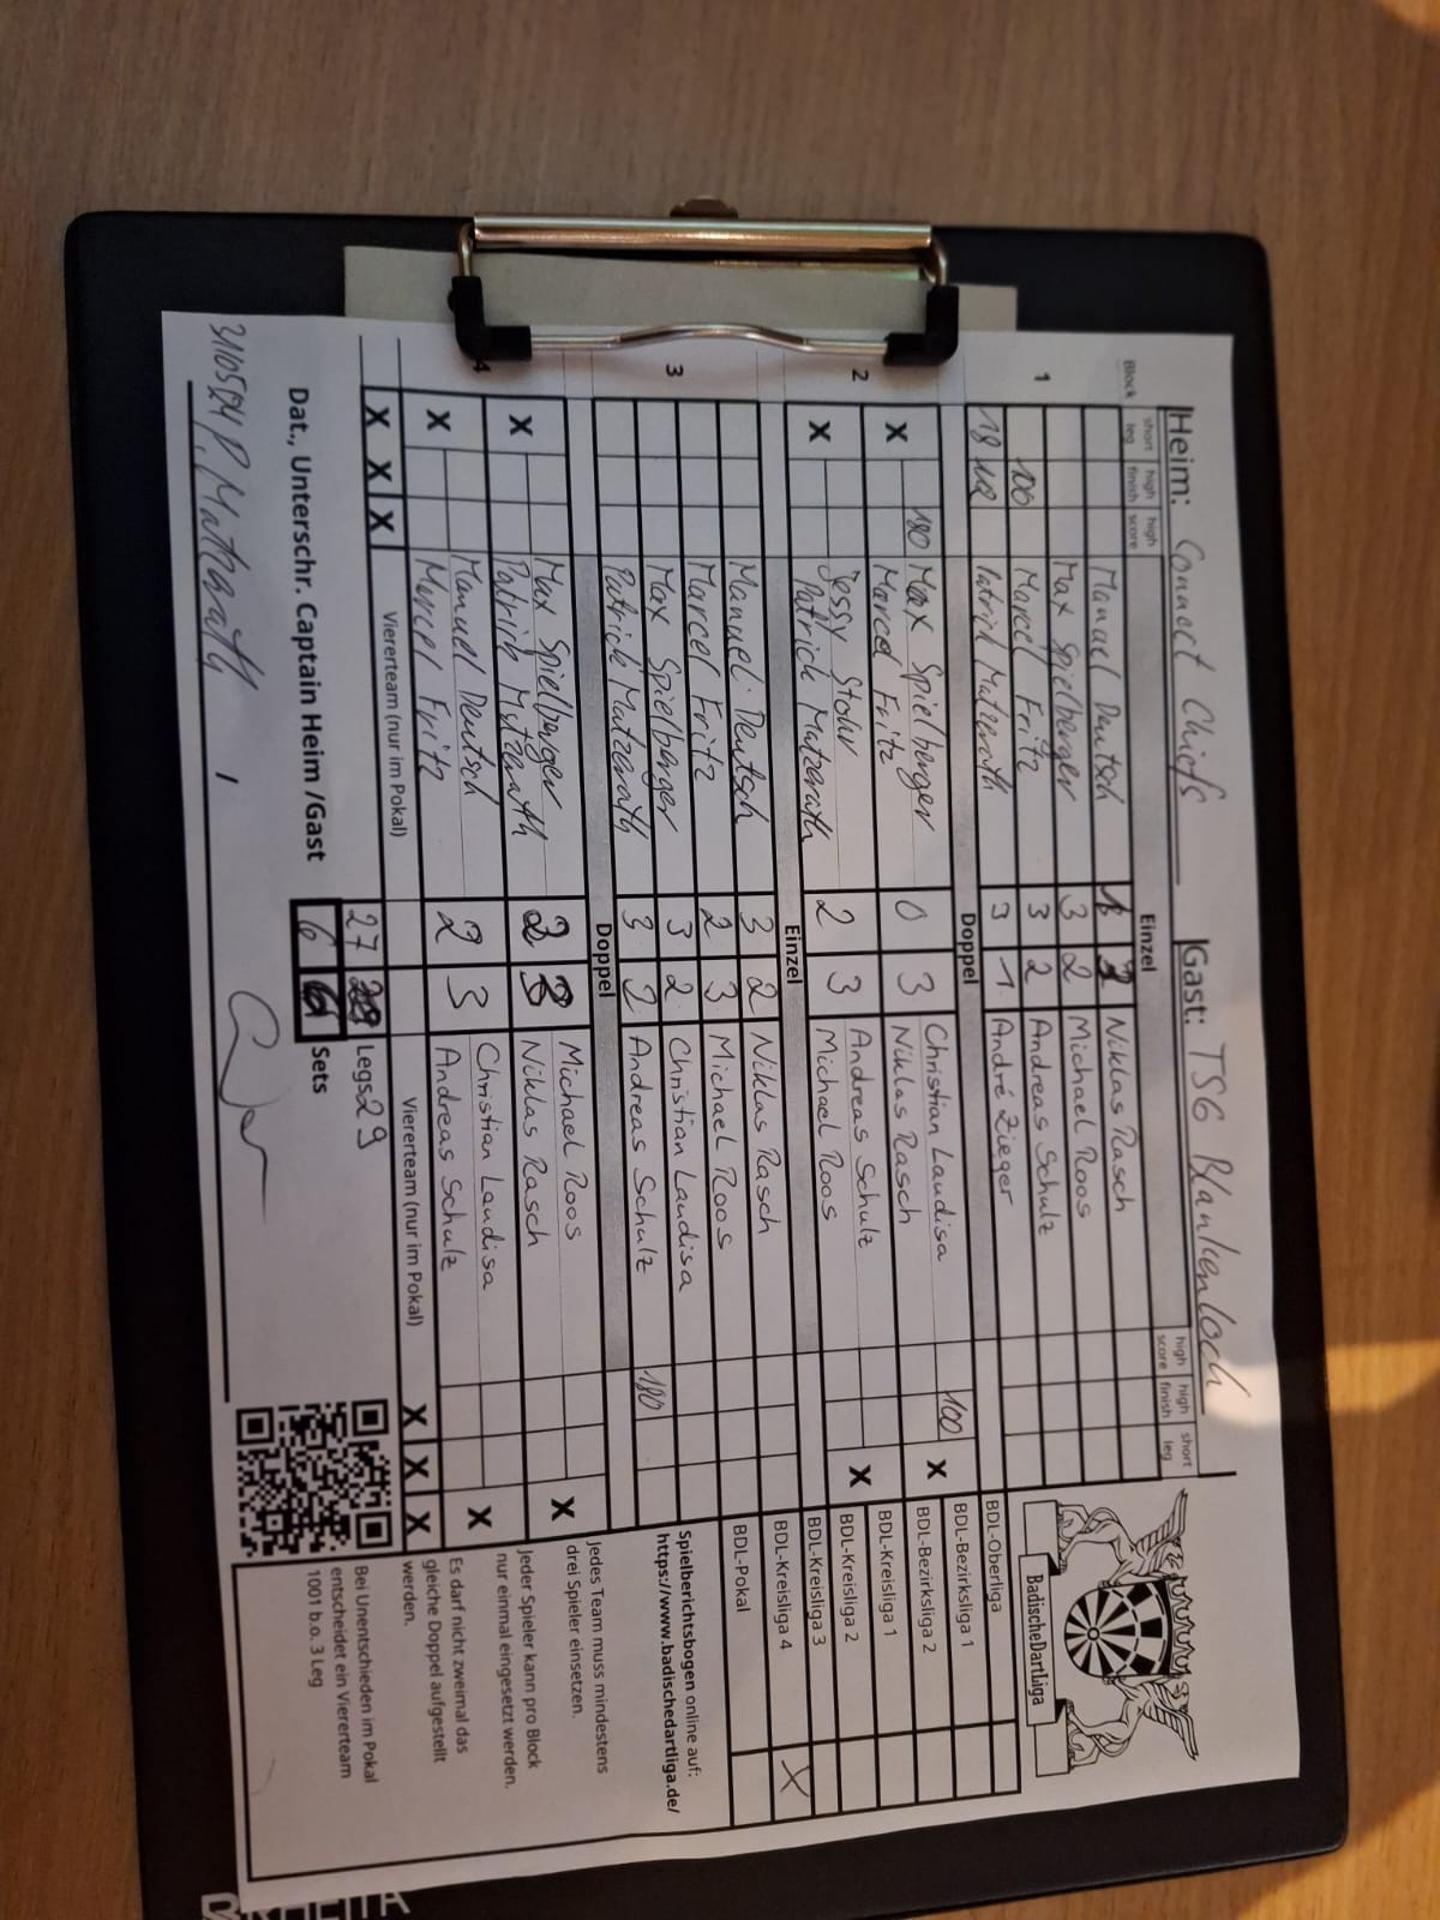 Heim: Connect Chiefs Gast: TSG Blankenloch
Block short leg high finish high score Einzel high score high finish short leg
1
Manuel Deutsch Niklas Rasch
Max Spielberger 3 2 Michael Roos
100 Marcel Fritz 3 2 Andreas Schulz
18 Patrick Matzerath 3 1 André Zieger
Doppel
2
180 Max Spielberger Christian Laudisa 100
X Marcel Fritz 0 3 Niklas Rasch X
Jessy Stohr Andreas Schulz
X Patrick Matzerath 2 3 Michael Roos X
Einzel
3
Manuel Deutsch 3 2 Niklas Rasch
Marcel Fritz 2 3 Michael Roos
Max Spielberger 3 2 Christian Laudisa
Patrick Matzerath 3 2 Andreas Schulz 180
Doppel
4
Max Spielberger Michael Roos
X Patrick Matzerath 2 3 Niklas Rasch X
Manuel Deutsch Christian Laudisa
X Marcel Fritz 2 3 Andreas Schulz X
X X X Viererteam (nur im Pokal) Viererteam (nur im Pokal) X X X
27 Legs 29
Dat., Unterschr. Captain Heim /Gast 6 6 Sets
310524 P. Matzerath /
BadischeDartLiga
BDL-Oberliga
BDL-Bezirksliga 1
BDL-Bezirksliga 2
BDL-Kreisliga 1
BDL-Kreisliga 2
BDL-Kreisliga 3
BDL-Kreisliga 4 X
BDL-Pokal
Spielberichtsbogen online auf:
https://www.badischedartliga.de/
Jedes Team muss mindestens
drei Spieler einsetzen.
Jeder Spieler kann pro Block
nur einmal eingesetzt werden.
Es darf nicht zweimal das
gleiche Doppel aufgestellt
werden.
Bei Unentschieden im Pokal
entscheidet ein Viererteam
1001 b.o. 3 Leg